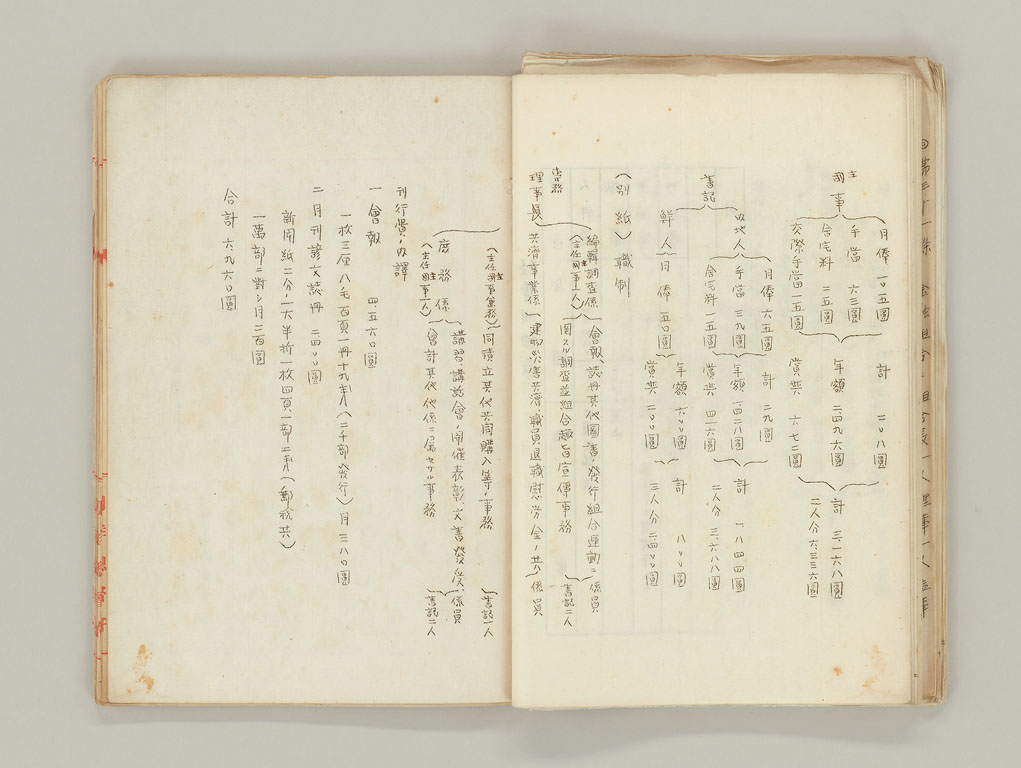 主事
月俸 一〇五圓
手當 六三圓
舎宅料 二五圓
交際手當一五圓
計 二〇八圓
年額 二、四九六圓
賞與 六七二圓
計 三、一六八圓
二人分 六、三三六圓
書記
内地人
月俸 六五圓
手當 三九圓
舎宅料一五圓
計
年額 一、四二八圓
賞與 四一六圓
計 一、八四四圓
二人分 三、六八八圓
鮮人
月俸 五〇圓
年額 六〇〇圓
賞與 二〇〇圓
計 八〇〇圓
三人分 二、四〇〇圓
(別紙)職制
常務
理事長
編輯調査係
(主任主事一人)
會報、誌冊其他圖書ノ發行組合運動ニ
関スル調査並組合趣旨宣傳事務
係員
書記二人
共濟事業係
(主任主事兼務)
建物災害共濟、職員退職慰労金ノ共
同積立其他共同購入等ノ事務
係員
書記一人
庶務係
(主任主事一人)
講習講話會ノ開催表彰、文書發受、
會計其他他係ニ属セサル事務
係員
書記二人
刊行費ノ内譯
一 會報 四、五六〇圓
一枚三厘八毛 百頁一冊十九銭(二千部發行)月 三八〇圓
二 月刊諺文誌冊 二、四〇〇圓
新聞紙二分ノ一大半折一枚四頁一部二銭(郵税共)
一萬部ニ對シ月二百圓
合計 六、九六〇圓